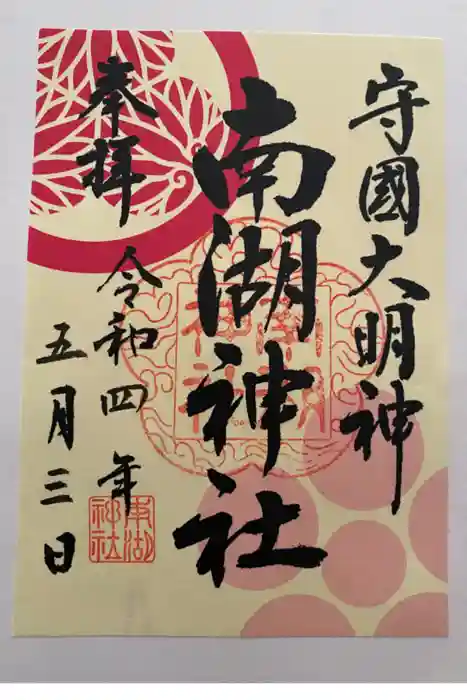 守國大明神
南湖神社
奉拝
令和四年
五月三日
南湖
神社